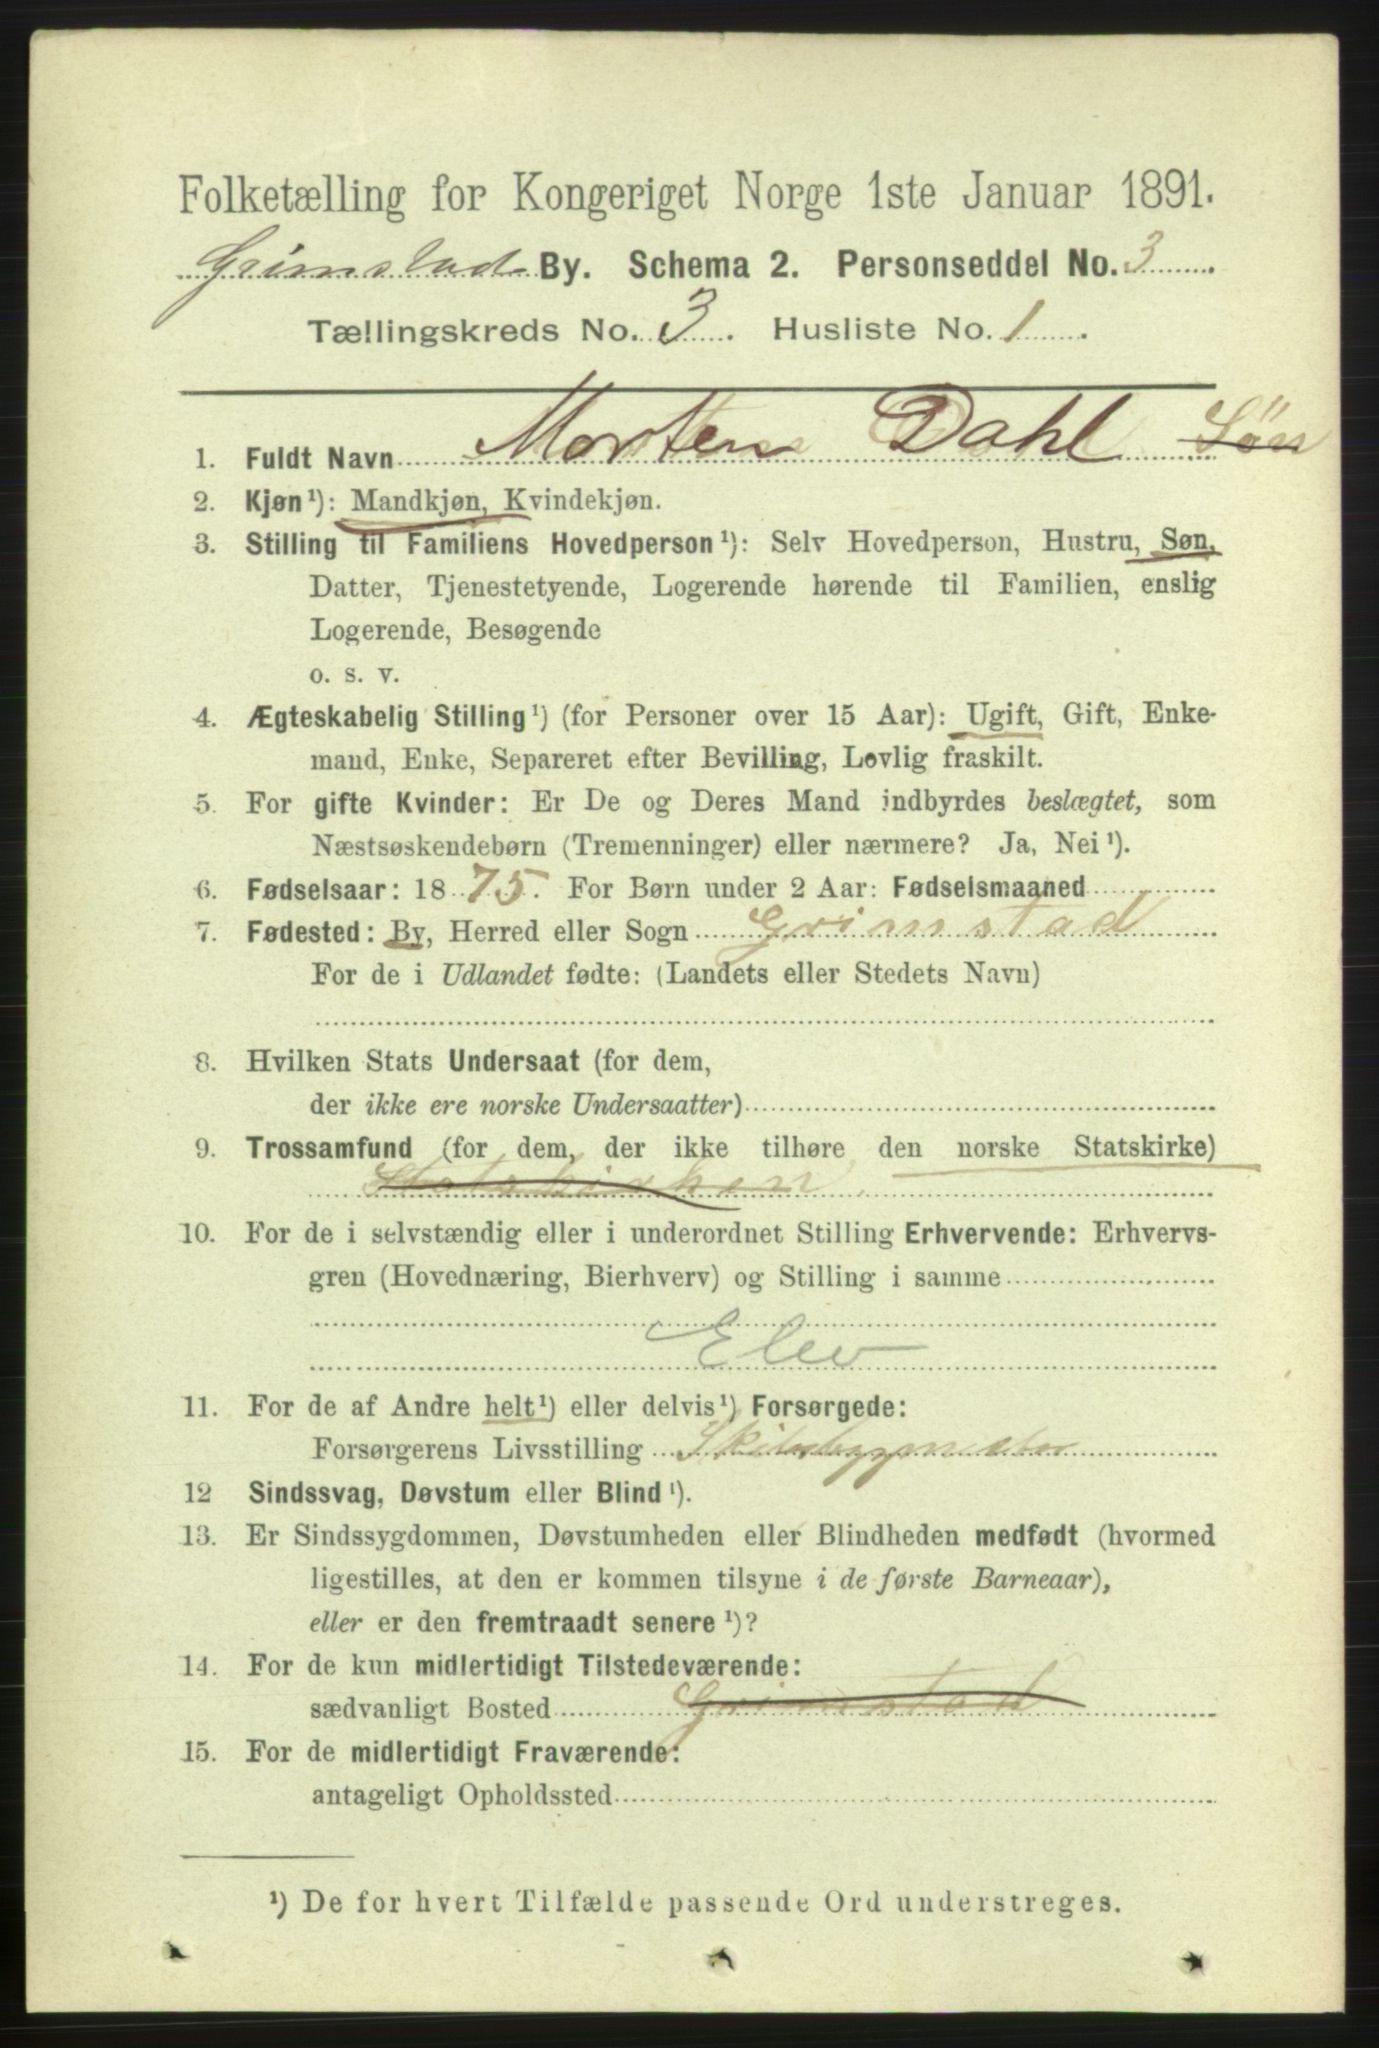 Folketælling for Kongeriget Norge 1ste Januar 1891.
Grimstad By. Schema 2. Personseddel No. 3
Tællingskreds No. 3. Husliste No. 1
1. Fuldt Navn Morten Dahl Søn
2. Kjøn¹): Mandkjøn, Kvindekjøn.
3. Stilling til Familiens Hovedperson¹): Selv Hovedperson, Hustru, Søn,
Datter, Tjenestetyende, Logerende hørende til Familien, enslig
Logerende, Besøgende
o. s. v.
4. Ægteskabelig Stilling¹) (for Personer over 15 Aar): Ugift, Gift, Enke-
mand, Enke, Separeret efter Bevilling, Lovlig fraskilt.
5. For gifte Kvinder: Er De og Deres Mand indbyrdes beslægtet, som
Næstsøskendebørn (Tremenninger) eller nærmere? Ja, Nei¹).
6. Fødselsaar: 1875. For Børn under 2 Aar: Fødselsmaaned
7. Fødested: By, Herred eller Sogn Grimstad
For de i Udlandet fødte: (Landets eller Stedets Navn)
8. Hvilken Stats Undersaat (for dem,
der ikke ere norske Undersaatter)
9. Trossamfund (for dem, der ikke tilhøre den norske Statskirke)
Statskirken
10. For de i selvstændig eller i underordnet Stilling Erhvervende: Erhvervs-
gren (Hovednæring, Bierhverv) og Stilling i samme
Elev
11. For de af Andre helt¹) eller delvis¹) Forsørgede:
Forsørgerens Livsstilling Skibsbygmester
12 Sindssvag, Døvstum eller Blind¹).
13. Er Sindssygdommen, Døvstumheden eller Blindheden medfødt (hvormed
ligestilles, at den er kommen tilsyne i de første Barneaar),
eller er den fremtraadt senere¹)?
14. For de kun midlertidigt Tilstedeværende:
sædvanligt Bosted Grimstad
15. For de midlertidigt Fraværende:
antageligt Opholdssted
¹) De for hvert Tilfælde passende Ord understreges.